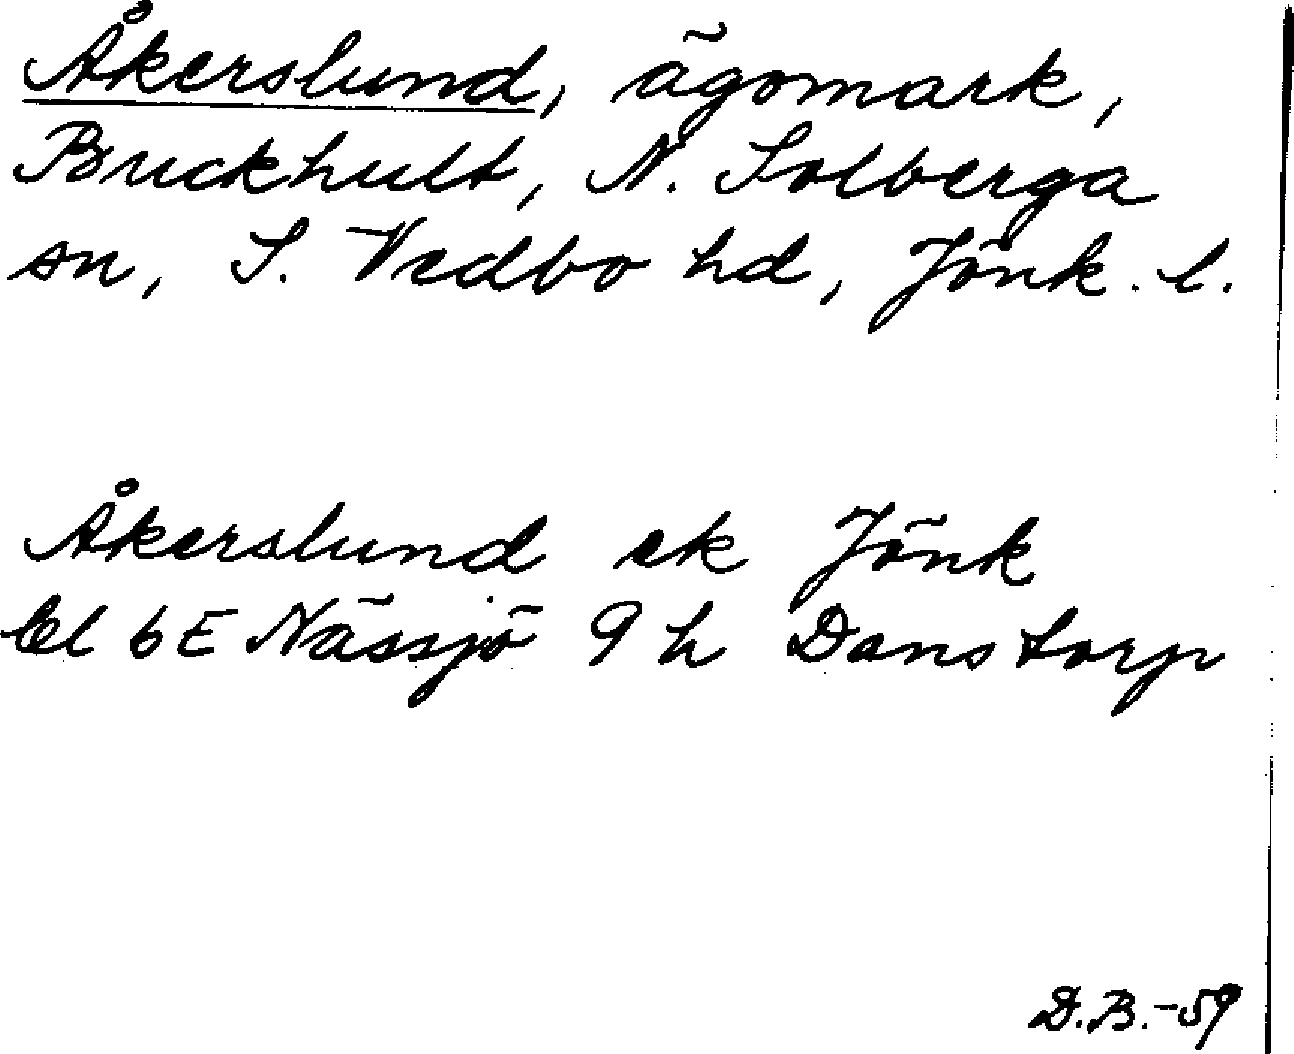 Åkerslund, ägomark,
Buckhult, N. Solberga
sn, S. Vedbo hd, Jönk. l.
Åkerslund ek Jönk
bl 6E Nässjö 9 h Danstorp
D.B.-59